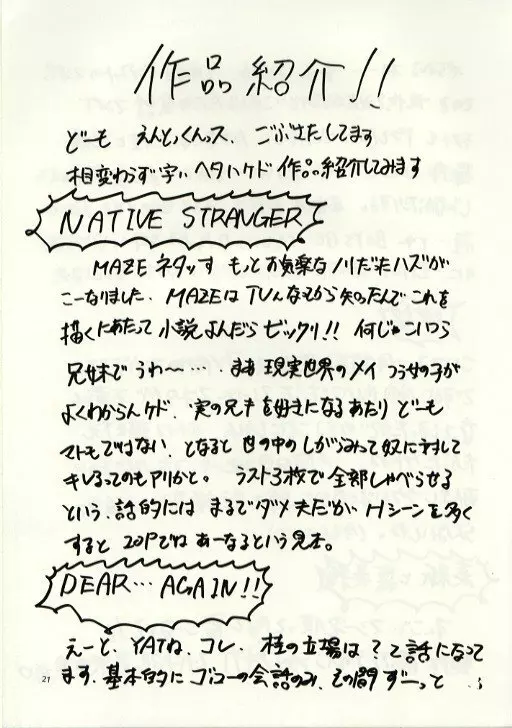 作品紹介!!
どーも えんとっくんっス、ごぶさたしてます
相変わらず字ぃヘタいケド 作品紹介してみます
NATIVE STRANGER
MAZEネタっす もっとお気楽なノリだったハズが
こーなりました、MAZEはTVんなってから知ったんで これを
描くにあたって 小説よんだらビックリ!! 何じゃこいつら
兄妹でうわ〜…‥ まあ 現実世界のメイ つう女の子が
よくわからんケド、実の兄を好きになるあたり どーも
マトモではない、となると 世の中のしがらみって奴に対して
キレるってのもアリかと。 ラスト3枚で全部しゃべらせる
という、話的には まるでダメ夫だが、Hシーンを多く
すると 20Pでは あーなるという見本。
DEAR… AGAIN!!
えーと、YATね、コレ、桂の立場は?と話になって
ます、基本的に ゴローの会話のみ、その間ずーっと
21